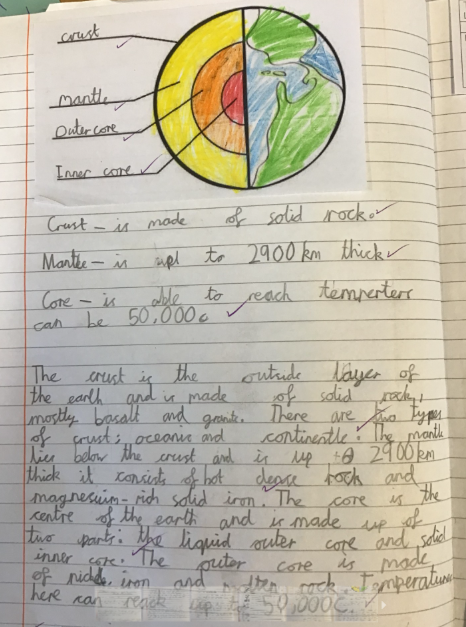 crust
Mantle
Outer core
Inner core
Crust – is made of solid rock.
Mantle – is up to 2900 km thick
Core – is able to reach temperters
can be 50,000c
The crust is the outside layer of
the earth and is made of solid rock,
mostly basalt and granite. There are two types
of crust; oceanic and continentle. The mantle
lies below the crust and is up to 2900 km
thick it consists of hot dense rock and
magnesuim-rich solid iron. The core is the
centre of the earth and is made up of
two parts: the liquid outer core and solid
inner core. The outer core is made
of nickle iron and molten rock. temperatures
here can reach up to 50,000C.